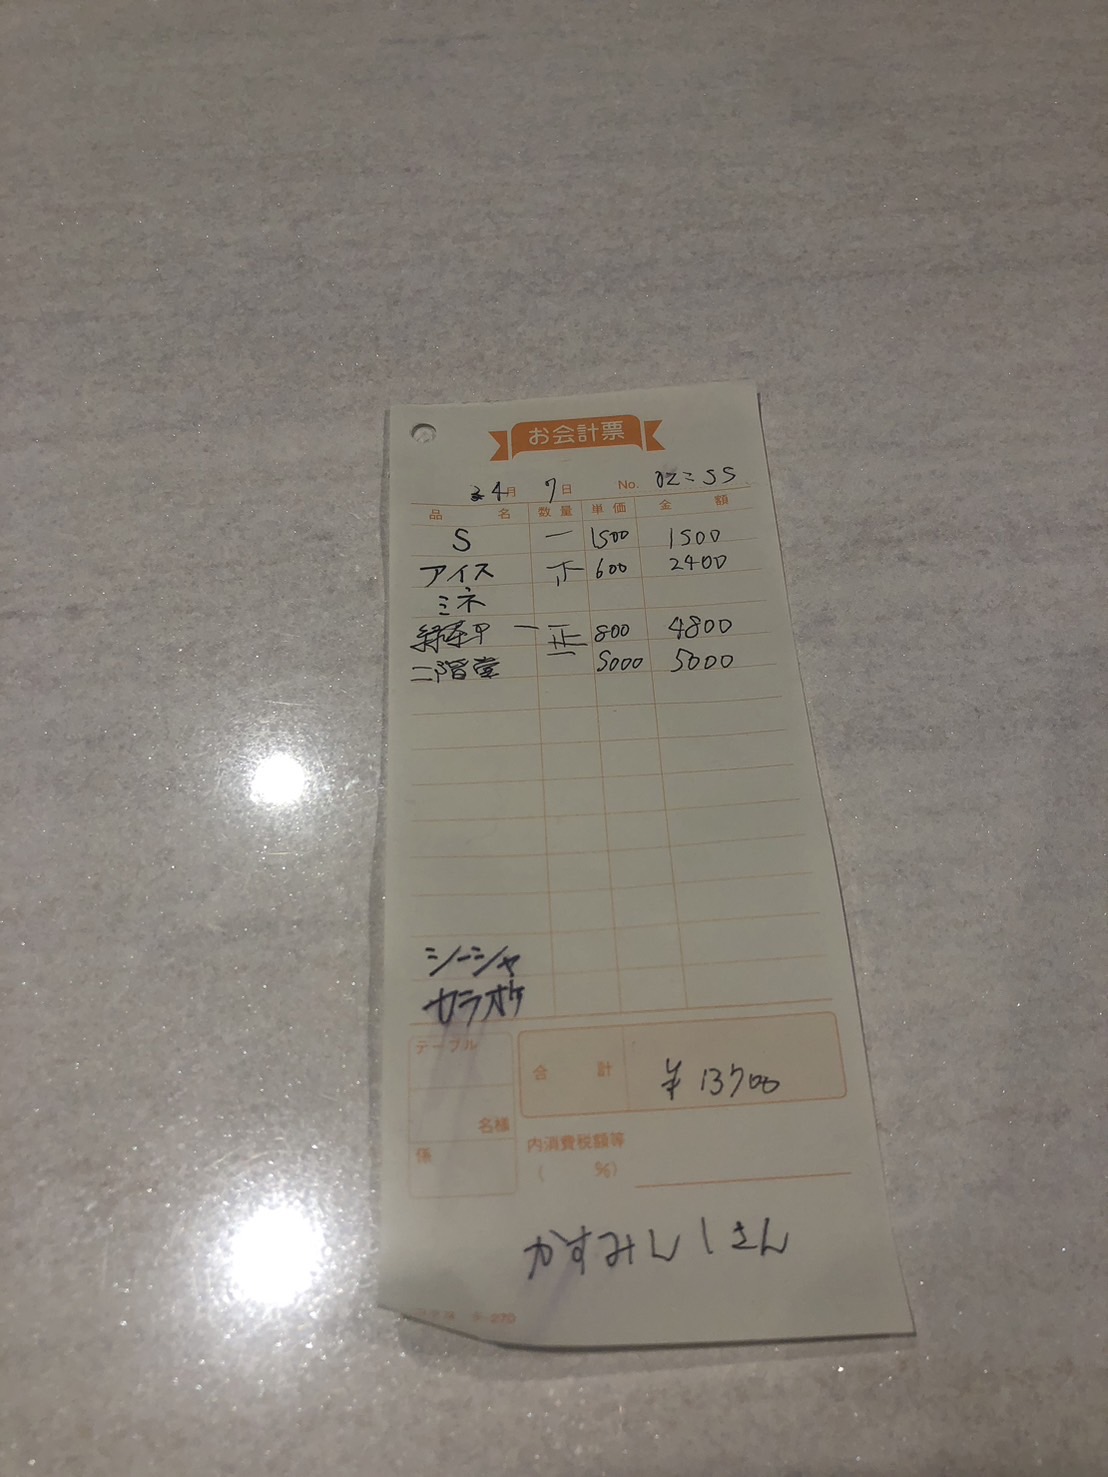 お会計票
4月 7日 No. 02:55
品名 数量 単価 金額
S 一 1500 1500
アイス 600 2400
ミネ
緑茶 800 4800
二階堂 5000 5000
シーシャ
カラオケ
テーブル
合計 ¥13700
名様
係
内消費税額等
( %)
かすみん 1さん